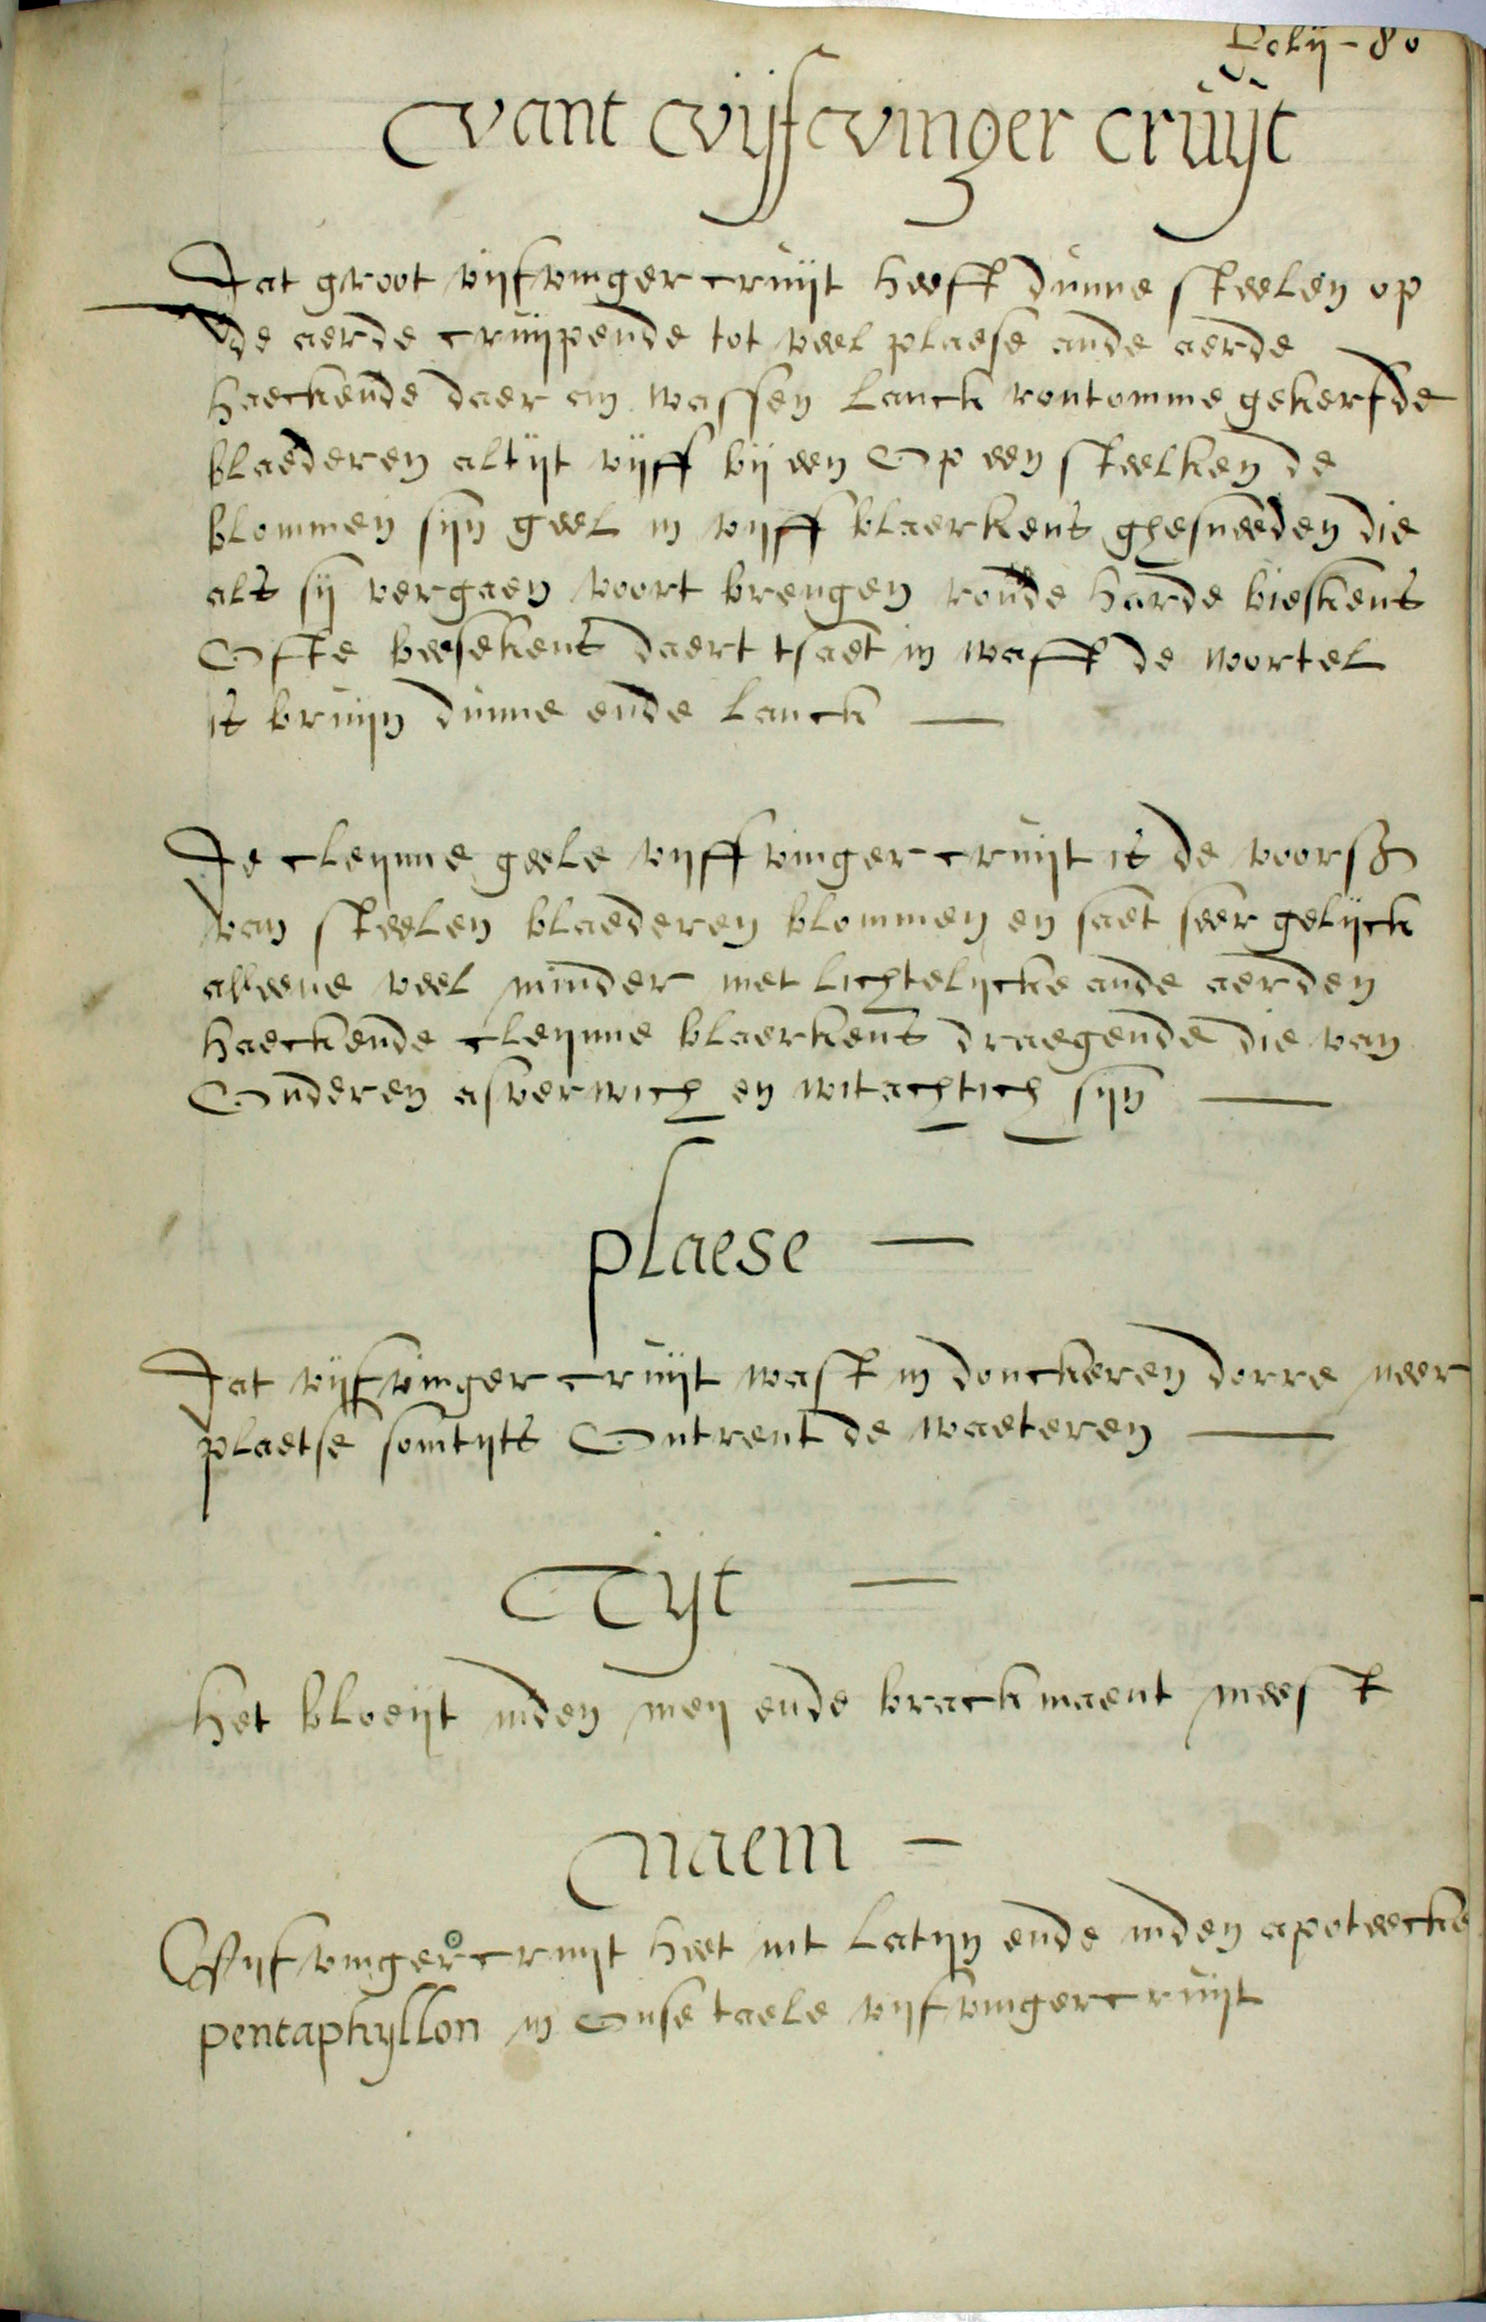 Folij - 80
vant vijf vinger cruijt
Dat groot vijfvinger cruijt heeft dunne steelen op
de aerde cruijpende tot veel plaese ande aerde
haeckende daer an wassen lanck rontomme gekerfde
blaederen altijt vijff bij een Op een steelken de
blommen sijn geel in vijff blaerkens ghesneeden die
als sij vergaen voort brengen ronde harde bieskens
Ofte beesekens daert tsaet in wasst de wortel
is bruijn dunne ende lanck
De cleijnne geele vijff vinger cruijt is de voors
van steelen blaederen blommen en saet seer gelijck
alleene veel minder met lichtelijcke ande aerden
haeckende cleijnne blaerkens draegende die van
Onderen asverwich en witachtich sijn
plaese
Dat vijfvinger cruijt wast in donckeren dorre neer
plaetse somtijts Ontrent de waeteren
Tijt
het bloeijt inden meij ende brackmaent meest
naem
Vijfvinger cruijt heet int latijn ende inden apoteecke
pentaphyllon in Onse taele vijfvinger cruijt